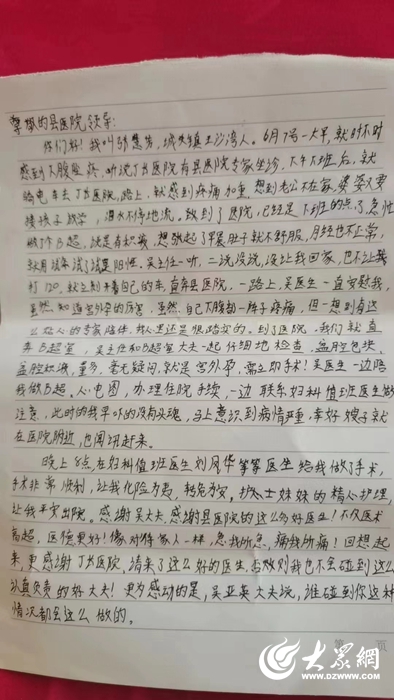 尊敬的县医院领导:
你们好!我叫张慧芳,城关镇土沙湾人。6月7号一大早,就时不时
感到下腹坠疼,听说丁当医院有县医院专家坐诊,下午下班后,就
骑电车去丁当医院,路上,就感到疼痛加重,想到老公不在家,婆婆又要
接孩子放学,泪水不停地流。做到了医院,已经是下班的点了,急忙
做了个B超,说是有积液,想张起了早晨肚子就不舒服,月经也不正常,
就用试条试了试是阳性。吴主任一听,二话没说,没让我回家,也不让我
打120,就立刻开着自己的车,直奔县医院,一路上,吴医生一直安慰我,
虽然知道宫外孕的厉害,虽然自己下腹部一阵子疼痛,但一想到有这
么好的专家陪伴,我心里还是很踏实的。到了医院,我们就直
奔B超室,吴主任和B超室大夫一起仔细地检查,盆腔包块,
盆腔积液,量多,毫无疑问,就是宫外孕,需立即手术!吴医生一边陪
我做B超、心电图,办理住院手续,一边联系妇科值班医生做
注意,此时的我早吓的没有头魂,马上意识到病情严重,幸好嫂子就
在医院附近,也闻讯赶来。
晚上8点在妇科值班医生刘风华等等医生给我做了手术,
手术非常顺利,让我化险为夷,转危为安,护士妹妹的精心护理,
让我平安出院。感谢吴大夫,感谢县医院的这么多好医生!不仅医术
高超,医德更好!像对待家人一样,急我所急,痛我所痛!回想起
来,更感谢丁当医院,请来了这么好的医生,否则我也不会碰到这么
认真负责的好大夫!更为感动的是,吴亚英大夫说,谁碰到你这种
情况都会这么做的。
第 页
大众網
www.dzwww.com